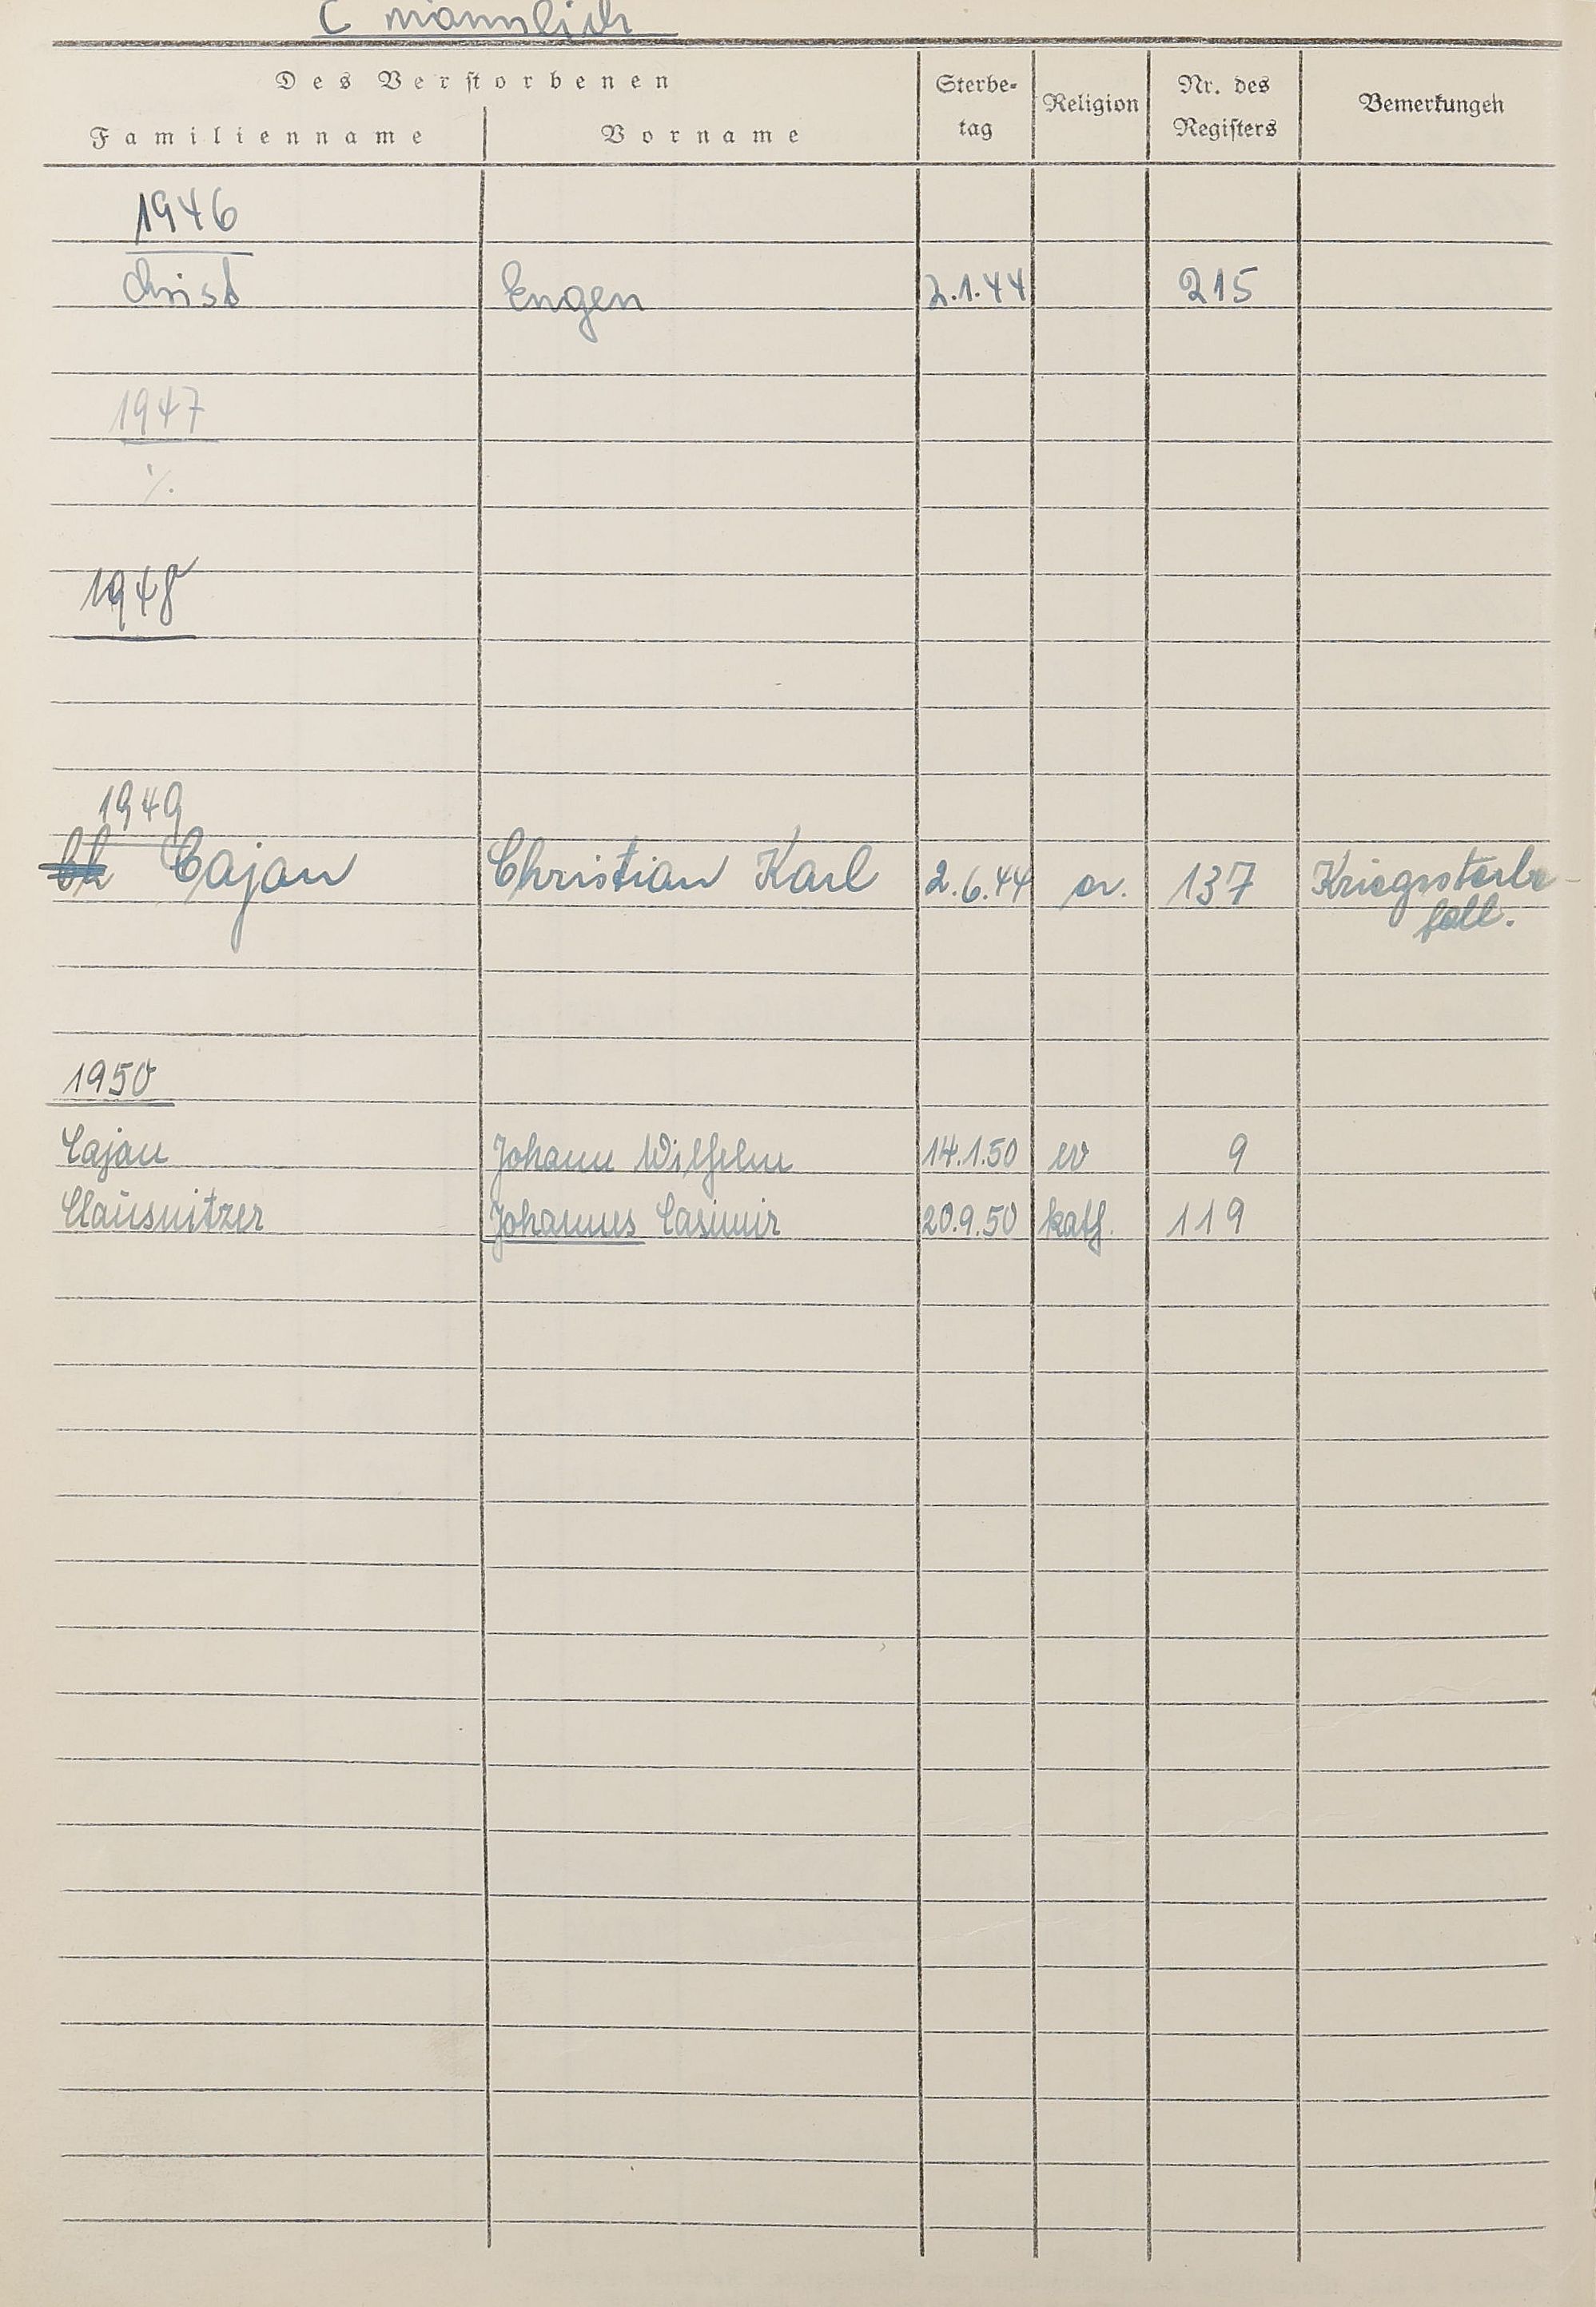 C männlich
Des Verstorbenen
Familienname Vorname Sterbe-
tag Religion Nr. des
Registers Bemerkungen
1946
Christ Eugen 2.1.44 215
1947
./.
1948
1949
Cajan Christian Karl 2.6.44 ev. 137 Kriegssterbe-
fall.
1950
Cajan Johann Wilhelm 14.1.50 ev 9
Clausnitzer Johannes Casimir 20.9.50 kath. 119